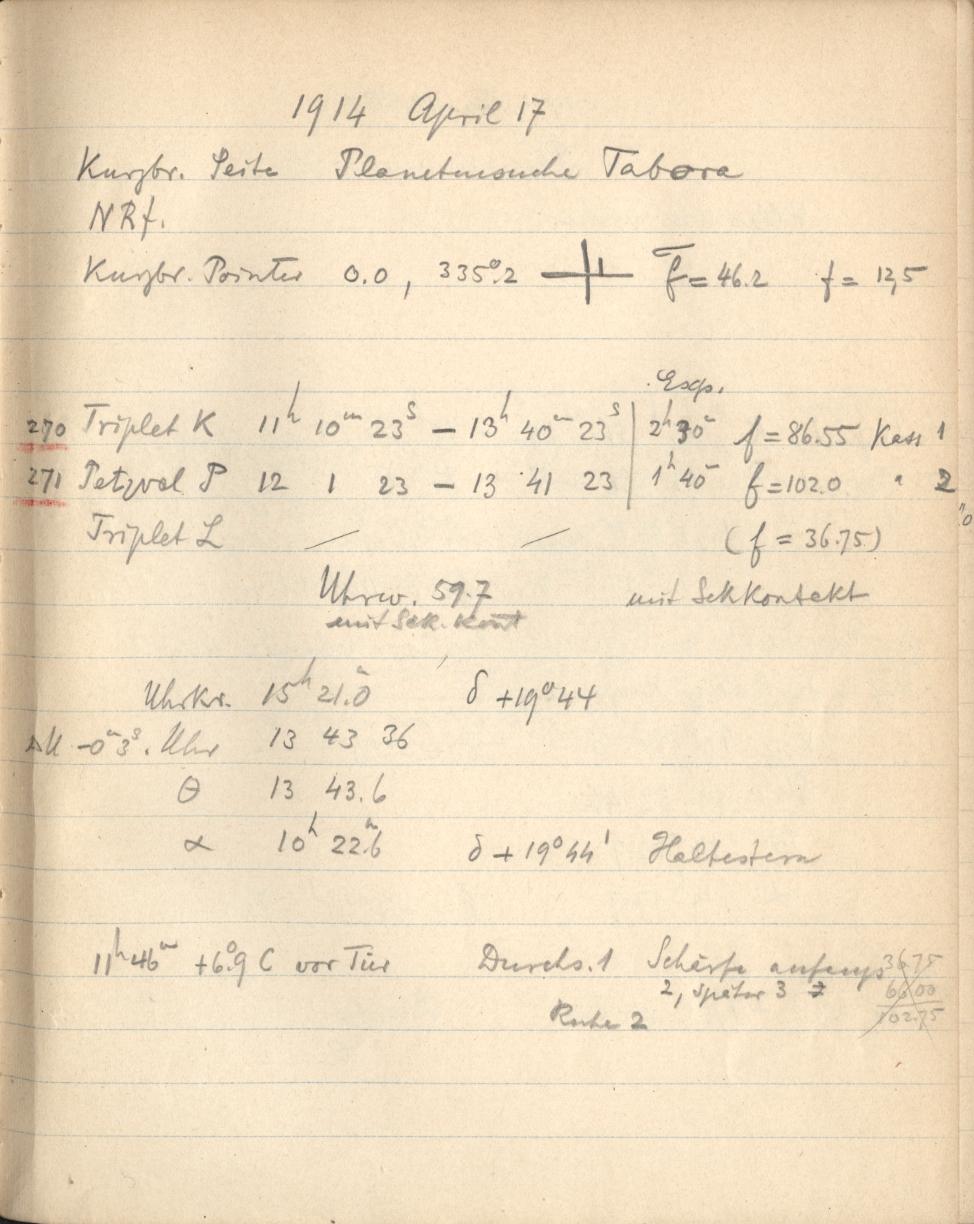 1914 April 17
Kurzbr. Seite Planetensuche Tabora
NRf.
Kurzbr. Pointer 0.0, 335°.2 f = 46.2 f = 12,5
Exp.
270 Triplet K 11h 10m 23s – 13h 40m 23s 2h 30m f = 86.55 Kass 1
271 Petzval P 12 1 23 – 13 41 23 1h 40m f = 102.0 " 2
Triplet L / / (f = 36.75)
Uhrw. 59.7 mit SekKontakt
mit Sek. Kont
Uhrkr. 15h 21m.0 δ +19°44
ΔU -0m 3s. Uhr 13 43 36
θ 13 43.6
α 10h 22m.6 δ +19°44' Haltestern
11h 46m +6°.9 C vor Tür Durchs. 1 Schärfe anfangs
2, später 3
Ruhe 2
36 75
66 00
102.75